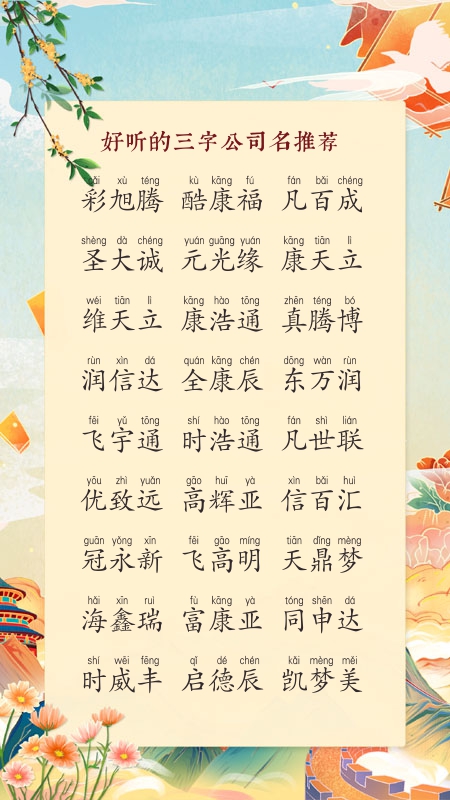 好听的三字公司名推荐
cǎi xù téng kù kāng fú fán bǎi chéng
彩旭腾 酷康福 凡百成
shèng dà chéng yuán guāng yuán kāng tiān lì
圣大诚 元光缘 康天立
wéi tiān lì kāng hào tōng zhēn téng bó
维天立 康浩通 真腾博
rùn xìn dá quán kāng chén dōng wàn rùn
润信达 全康辰 东万润
fēi yǔ tōng shí hào tōng fán shì lián
飞宇通 时浩通 凡世联
yōu zhì yuǎn gāo huī yà xìn bǎi huì
优致远 高辉亚 信百汇
guān yǒng xīn fēi gāo míng tiān dǐng mèng
冠永新 飞高明 天鼎梦
hǎi xīn ruì fù kāng yà tóng shēn dá
海鑫瑞 富康亚 同申达
shí wēi fēng qǐ dé chén kǎi mèng měi
时威丰 启德辰 凯梦美